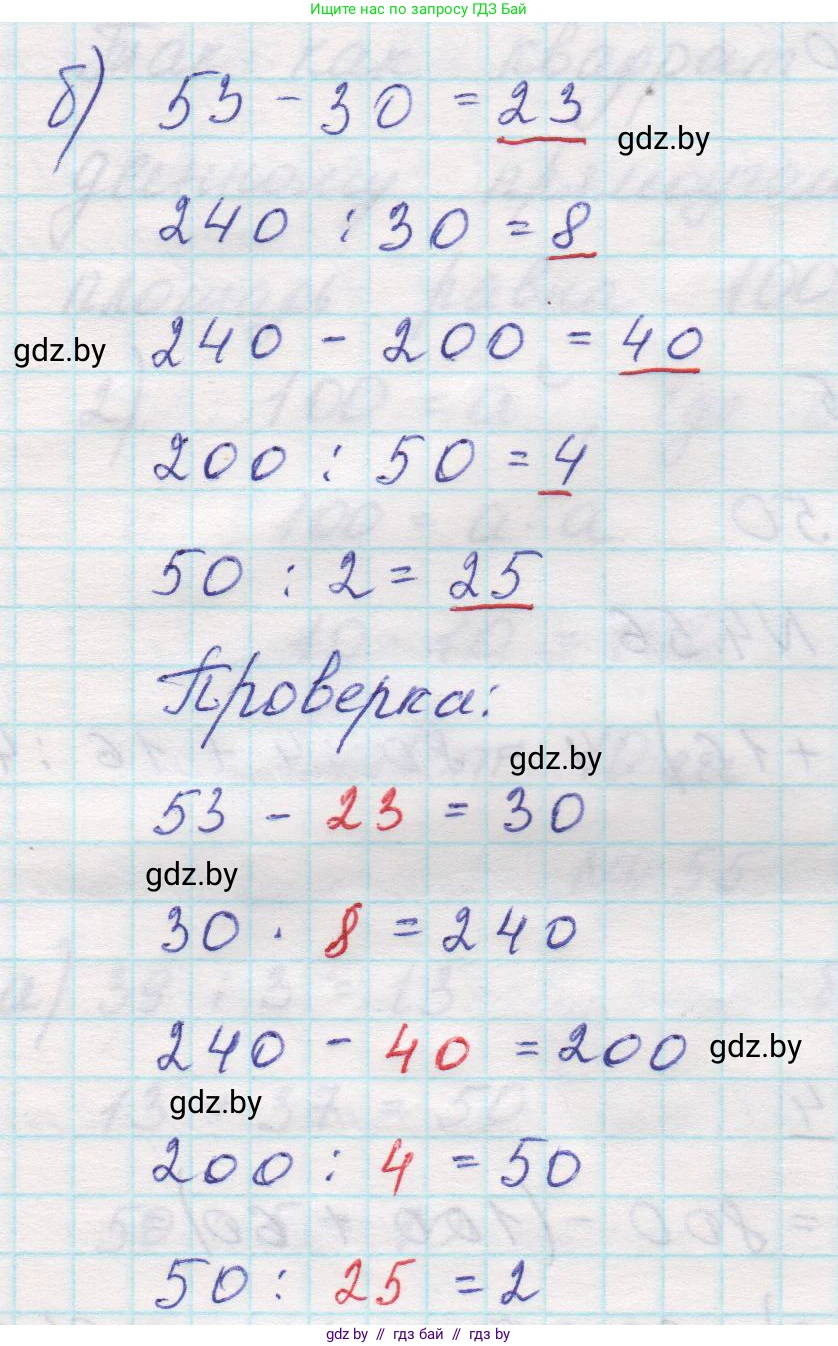 Ищите нас по запросу ГДЗ Бай
б) 53 - 30 = 23
gdz.by
240 : 30 = 8
gdz.by
240 - 200 = 40
200 : 50 = 4
50 : 2 = 25
Проверка:
gdz.by
53 - 23 = 30
gdz.by
30 · 8 = 240
240 - 40 = 200
gdz.by
gdz.by
200 : 4 = 50
50 : 25 = 2
gdz.by // гдз бай // гдз by